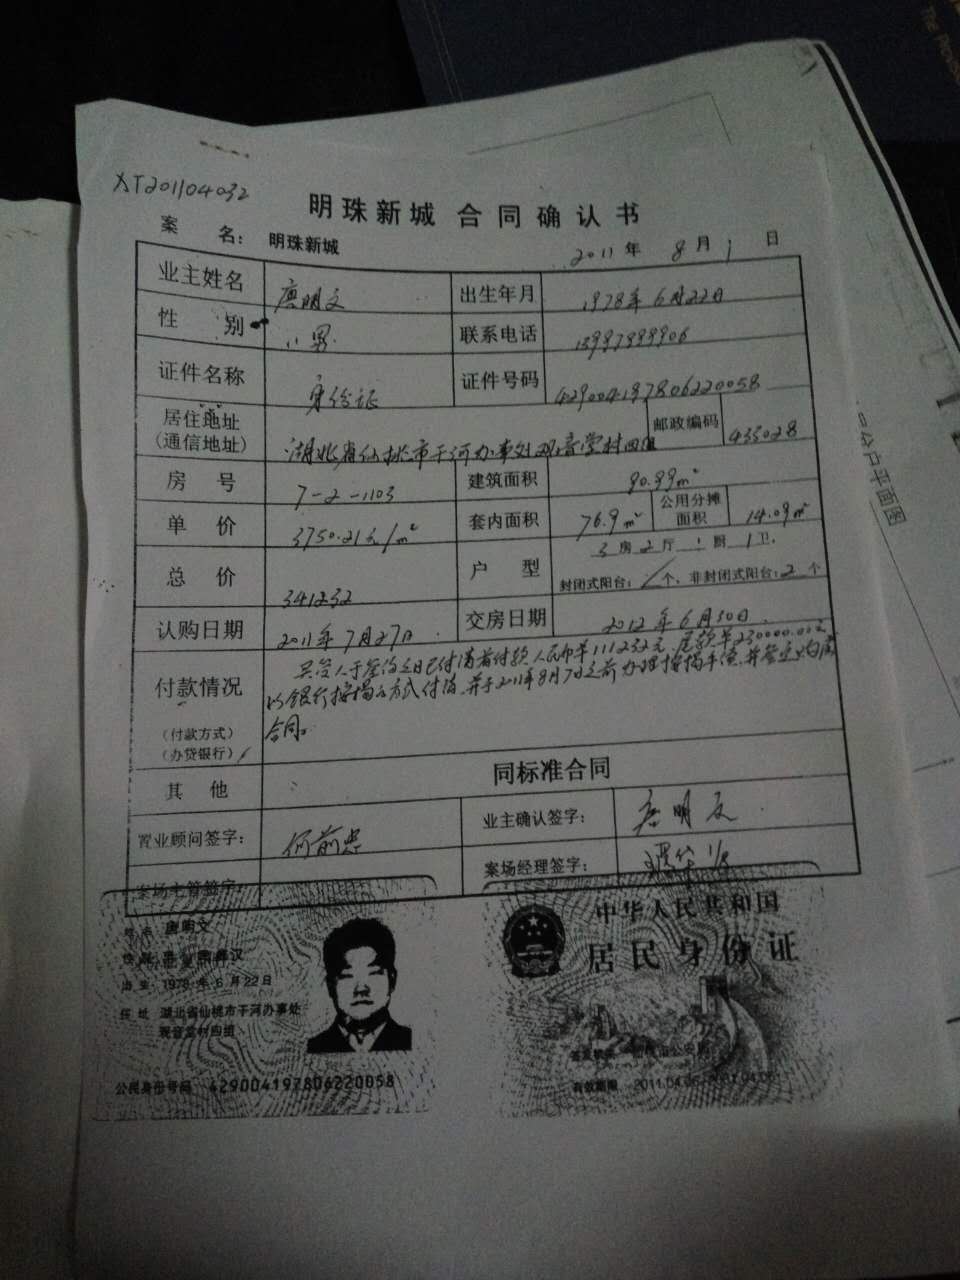 XT201104032
明珠新城 合同确认书
案 名： 明珠新城
2011 年 8 月 1 日
业主姓名 唐明文 出生年月 1978年6月22日
性 别 男 联系电话 13997999906
证件名称 身份证 证件号码 429004197806220058
居住地址
(通信地址) 湖北省仙桃市干河办事处观音堂村四组 邮政编码 433028
房 号 7-2-1103 建筑面积 90.99m²
单 价 3750.21元/m² 套内面积 76.9m² 公用分摊面积 14.09m²
总 价 341232 户 型 3 房 2 厅 1 厨 1 卫.
封闭式阳台： 个、非封闭式阳台：2 个
认购日期 2011年7月27日 交房日期 2012年6月30日
付款情况
(付款方式)
(办贷银行)
买受人于签约之日已付清首付款人民币￥111232元，尾款￥230000.00元
以银行按揭方式付清，并于2011年8月7日之前办理按揭手续，并签正购房
合同。
其 他 同标准合同
置业顾问签字： 何前忠 业主确认签字： 唐明文
案场主管签字： 案场经理签字：
姓名 唐明文
性别 男 民族 汉
出生 1978 年 6 月 22 日
住址 湖北省仙桃市干河办事处
观音堂村四组
公民身份号码 429004197806220058
中华人民共和国
居民身份证
签发机关 仙桃市公安局
有效期限 2011.04.06-2031.04.06
户平面图